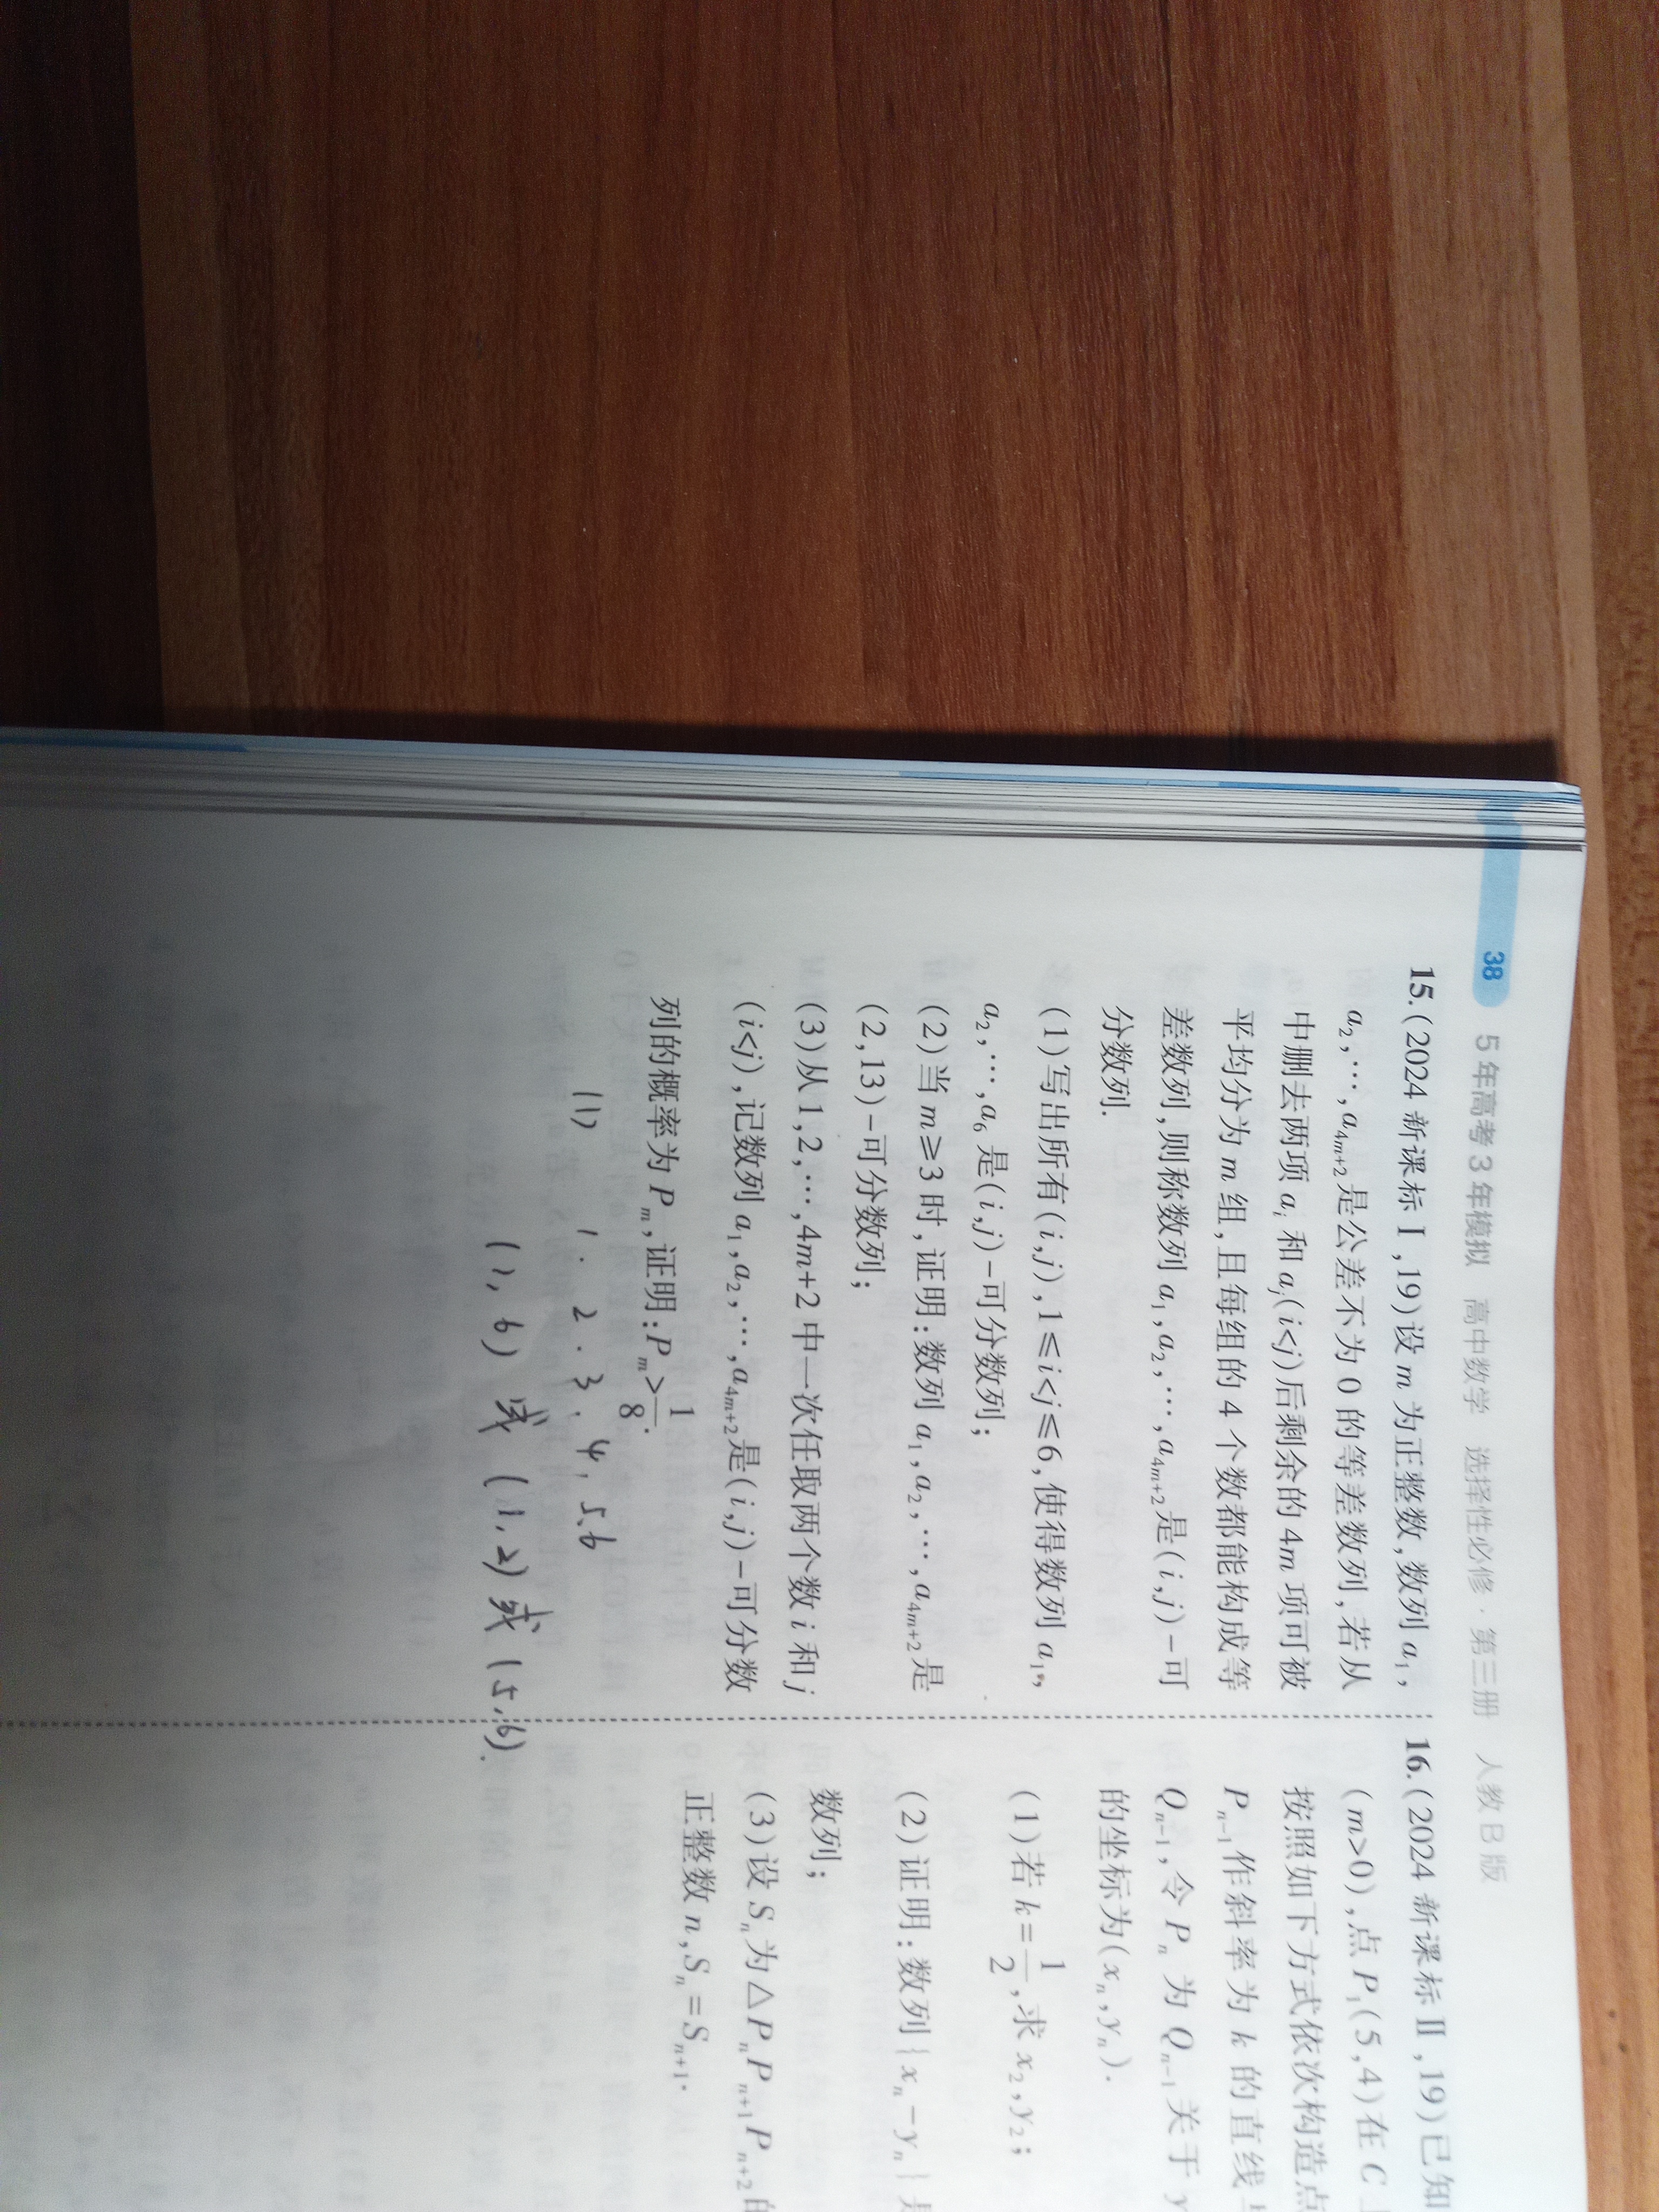 38 5年高考3年模拟 高中数学 选择性必修·第三册 人教B版
15.(2024 新课标Ⅰ,19)设 m 为正整数,数列 a₁,
a₂,…,a₄ₘ₊₂是公差不为 0 的等差数列,若从
中删去两项 aᵢ 和 aⱼ(i<j)后剩余的 4m 项可被
平均分为 m 组,且每组的 4 个数都能构成等
差数列,则称数列 a₁,a₂,…,a₄ₘ₊₂是(i,j)-可
分数列.
(1)写出所有(i,j),1≤i<j≤6,使得数列 a₁,
a₂,…,a₆ 是(i,j)-可分数列;
(2)当 m≥3 时,证明:数列 a₁,a₂,…,a₄ₘ₊₂是
(2,13)-可分数列;
(3)从 1,2,…,4m+2 中一次任取两个数 i 和 j
(i<j),记数列 a₁,a₂,…,a₄ₘ₊₂是(i,j)-可分数
列的概率为 Pₘ,证明:Pₘ>1/8.
(1) 1. 2. 3. 4, 5. 6
(1,6) 或 (1,2) 或 (5,6).
16.(2024 新课标Ⅱ,19)已知
(m>0),点 P₁(5,4)在 C
按照如下方式依次构造点
Pₙ₋₁作斜率为 k 的直线与
Qₙ₋₁,令 Pₙ 为 Qₙ₋₁关于 y
的坐标为(xₙ,yₙ).
(1)若 k=1/2,求 x₂,y₂;
(2)证明:数列{xₙ-yₙ}是
数列;
(3)设 Sₙ为△PₙPₙ₊₁Pₙ₊₂的
正整数 n,Sₙ=Sₙ₊₁.